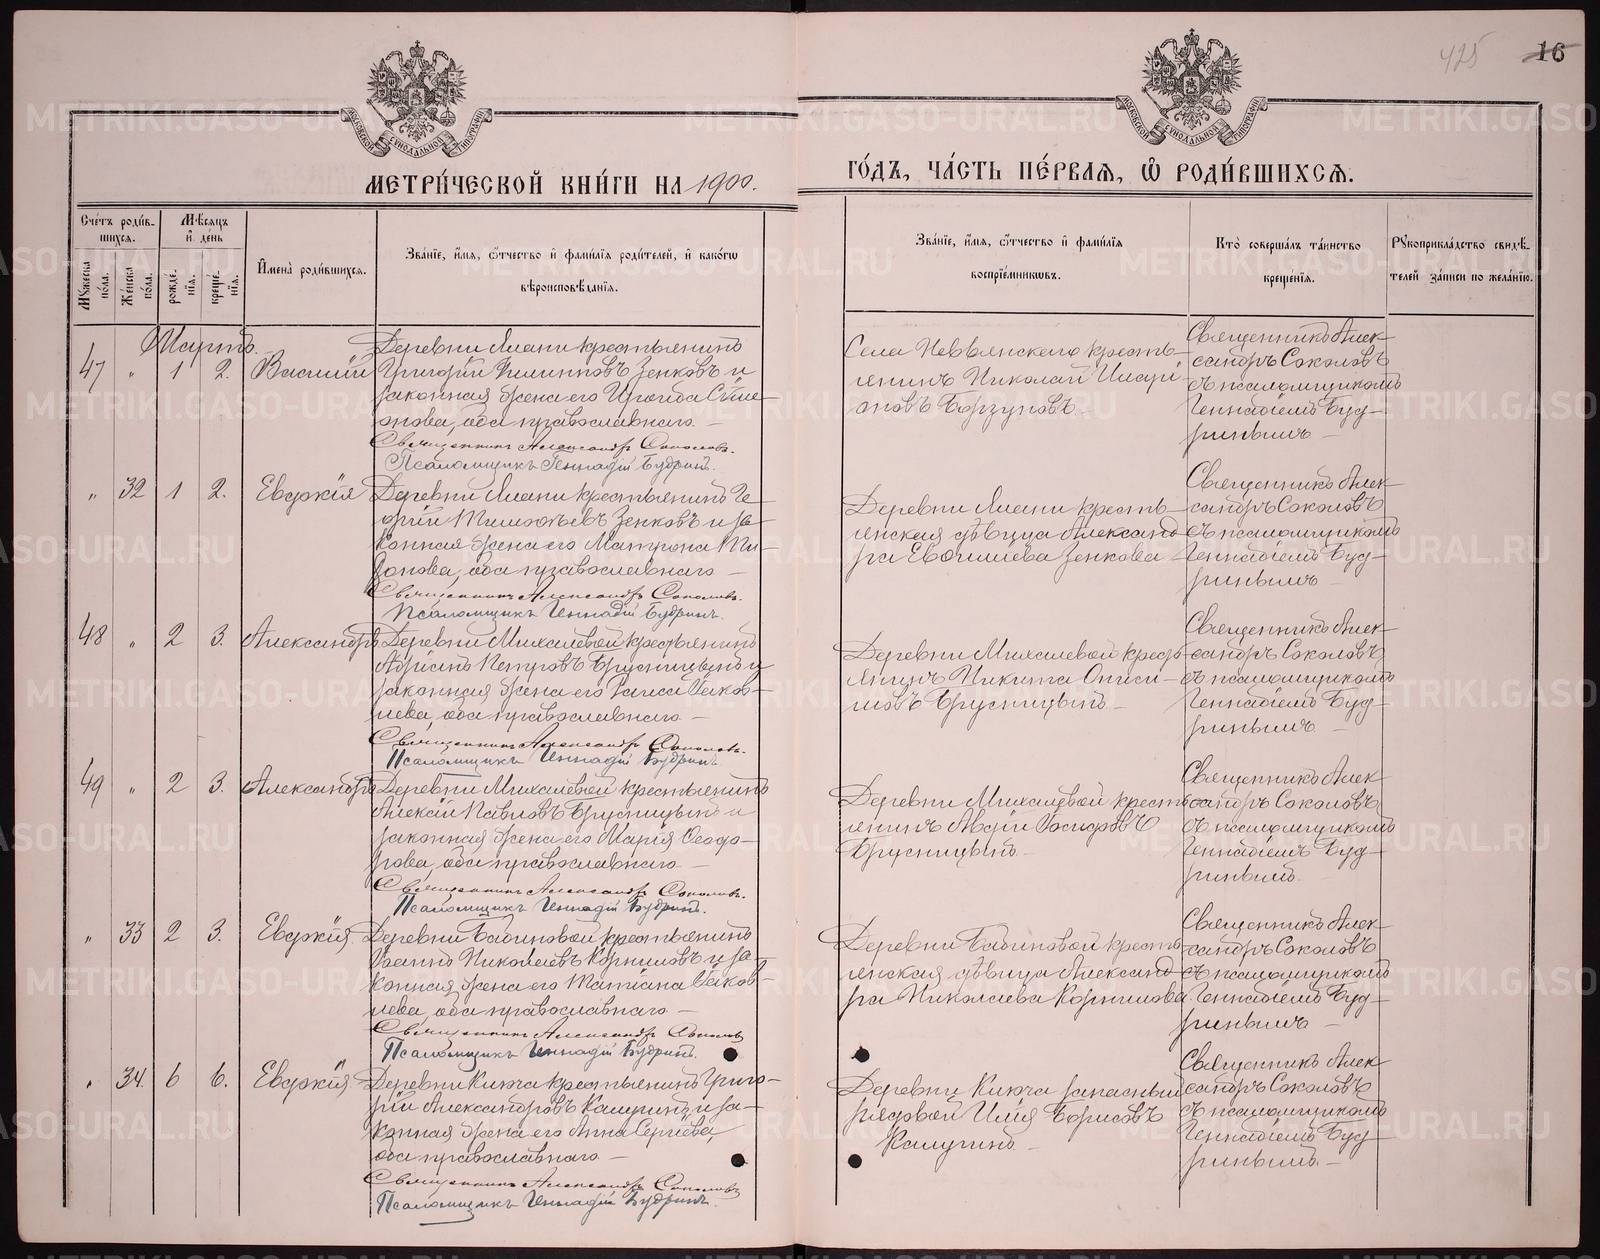 425
16
МЕТРИ́ЧЕСКОЙ КНИ́ГИ НА 1900.
ГО́ДЪ, ЧА́СТЬ ПЕ́РВАѦ, Ѡ РОДИ́ВШИХСѦ.
Сче́тъ роди́в-
шихсѧ.
Мꙋ́жеска по́ла.
Же́нска по́ла.
Мѣ́сѧцъ
и҆ де́нь
рожде́-
нїѧ.
креще́-
нїѧ.
И҆мена̀ роди́вшихсѧ.
Зва́нїе, и҆́мѧ, ѻ҆́тчество и҆ фами́лїѧ роди́телей, и҆ како́гѡ
вѣроисповѣ́данїѧ.
Зва́нїе, и҆́мѧ, ѻ҆́тчество и҆ фами́лїѧ
воспрїе́мникѡвъ.
Кто̀ соверша́лъ та́инство
креще́нїѧ.
Рꙋкоприкла́дство свидѣ́-
телей за́писи по жела́нїю.
Мартъ.
47 " 1 2. Василій
Деревни
крестьянинъ
Григорій
Зенковъ и
законная жена его
Симе-
онова, оба православнаго —
Священникъ Александръ Соколовъ.
Псаломщикъ Геннадій Будринъ.
Села Невьянскаго кресть-
янинъ Николай Илари-
оновъ Борзуновъ. —
Священникъ Алек-
сандръ Соколовъ
съ псаломщикомъ
Геннадіемъ Буд-
ринымъ —
" 32 1 2. Евдокія
Деревни
крестьянинъ Ге-
оргій Тимофѣевъ Зенковъ и за-
конная жена его Матрона
оба православнаго —
Священникъ Александръ Соколовъ.
Псаломщикъ Геннадій Будринъ.
Деревни
кресть-
янская дѣвица Александ-
ра
Зенкова —
Священникъ Алек-
сандръ Соколовъ
съ псаломщикомъ
Геннадіемъ Буд-
ринымъ —
48 " 2 3. Александръ
Деревни Михалевой крестьянинъ
Петровъ Брусницынъ и
законная жена его Раиса Іаков-
лева, оба православнаго —
Священникъ Александръ Соколовъ.
Псаломщикъ Геннадій Будринъ
Деревни Михалевой кресть-
янинъ Никита
Брусницынъ —
Священникъ Алек-
сандръ Соколовъ
съ псаломщикомъ
Геннадіемъ Буд-
ринымъ —
49 " 2 3. Александръ
Деревни Михалевой крестьянинъ
Алексій Павловъ Брусницынъ и
законная жена его Марія Ѳеодо-
рова, оба православнаго —
Священникъ Александръ Соколовъ.
Псаломщикъ Геннадій Будринъ.
Деревни Михалевой кресть-
янинъ Авдій
Брусницынъ —
Священникъ Алек-
сандръ Соколовъ
съ псаломщикомъ
Геннадіемъ Буд-
ринымъ.
" 33 2 3. Евдокія
Деревни Бабиновой крестьянинъ
Іоаннъ Николаевъ Корниловъ и за-
конная жена его Татіана Іаков-
лева, оба православнаго —
Священникъ Александръ Соколовъ
Псаломщикъ Геннадій Будринъ.
Деревни Бабиновой кресть-
янская дѣвица Александ-
ра Николаева Корнилова.
Священникъ Алек-
сандръ Соколовъ
съ псаломщикомъ
Геннадіемъ Буд-
ринымъ —
" 34. 6 6. Евдокія
Деревни Ключа крестьянинъ Григо-
рій Александровъ Калугинъ и за-
конная жена его Анна Сергіева,
оба православнаго —
Священникъ Александръ Соколовъ
Псаломщикъ Геннадій Будринъ.
Деревни Ключа запасный
рядовой Илія Борисовъ
Калугинъ —
Священникъ Алек-
сандръ Соколовъ
съ псаломщикомъ
Геннадіемъ Буд-
ринымъ. —
METRIKI.GASO-URAL.RU